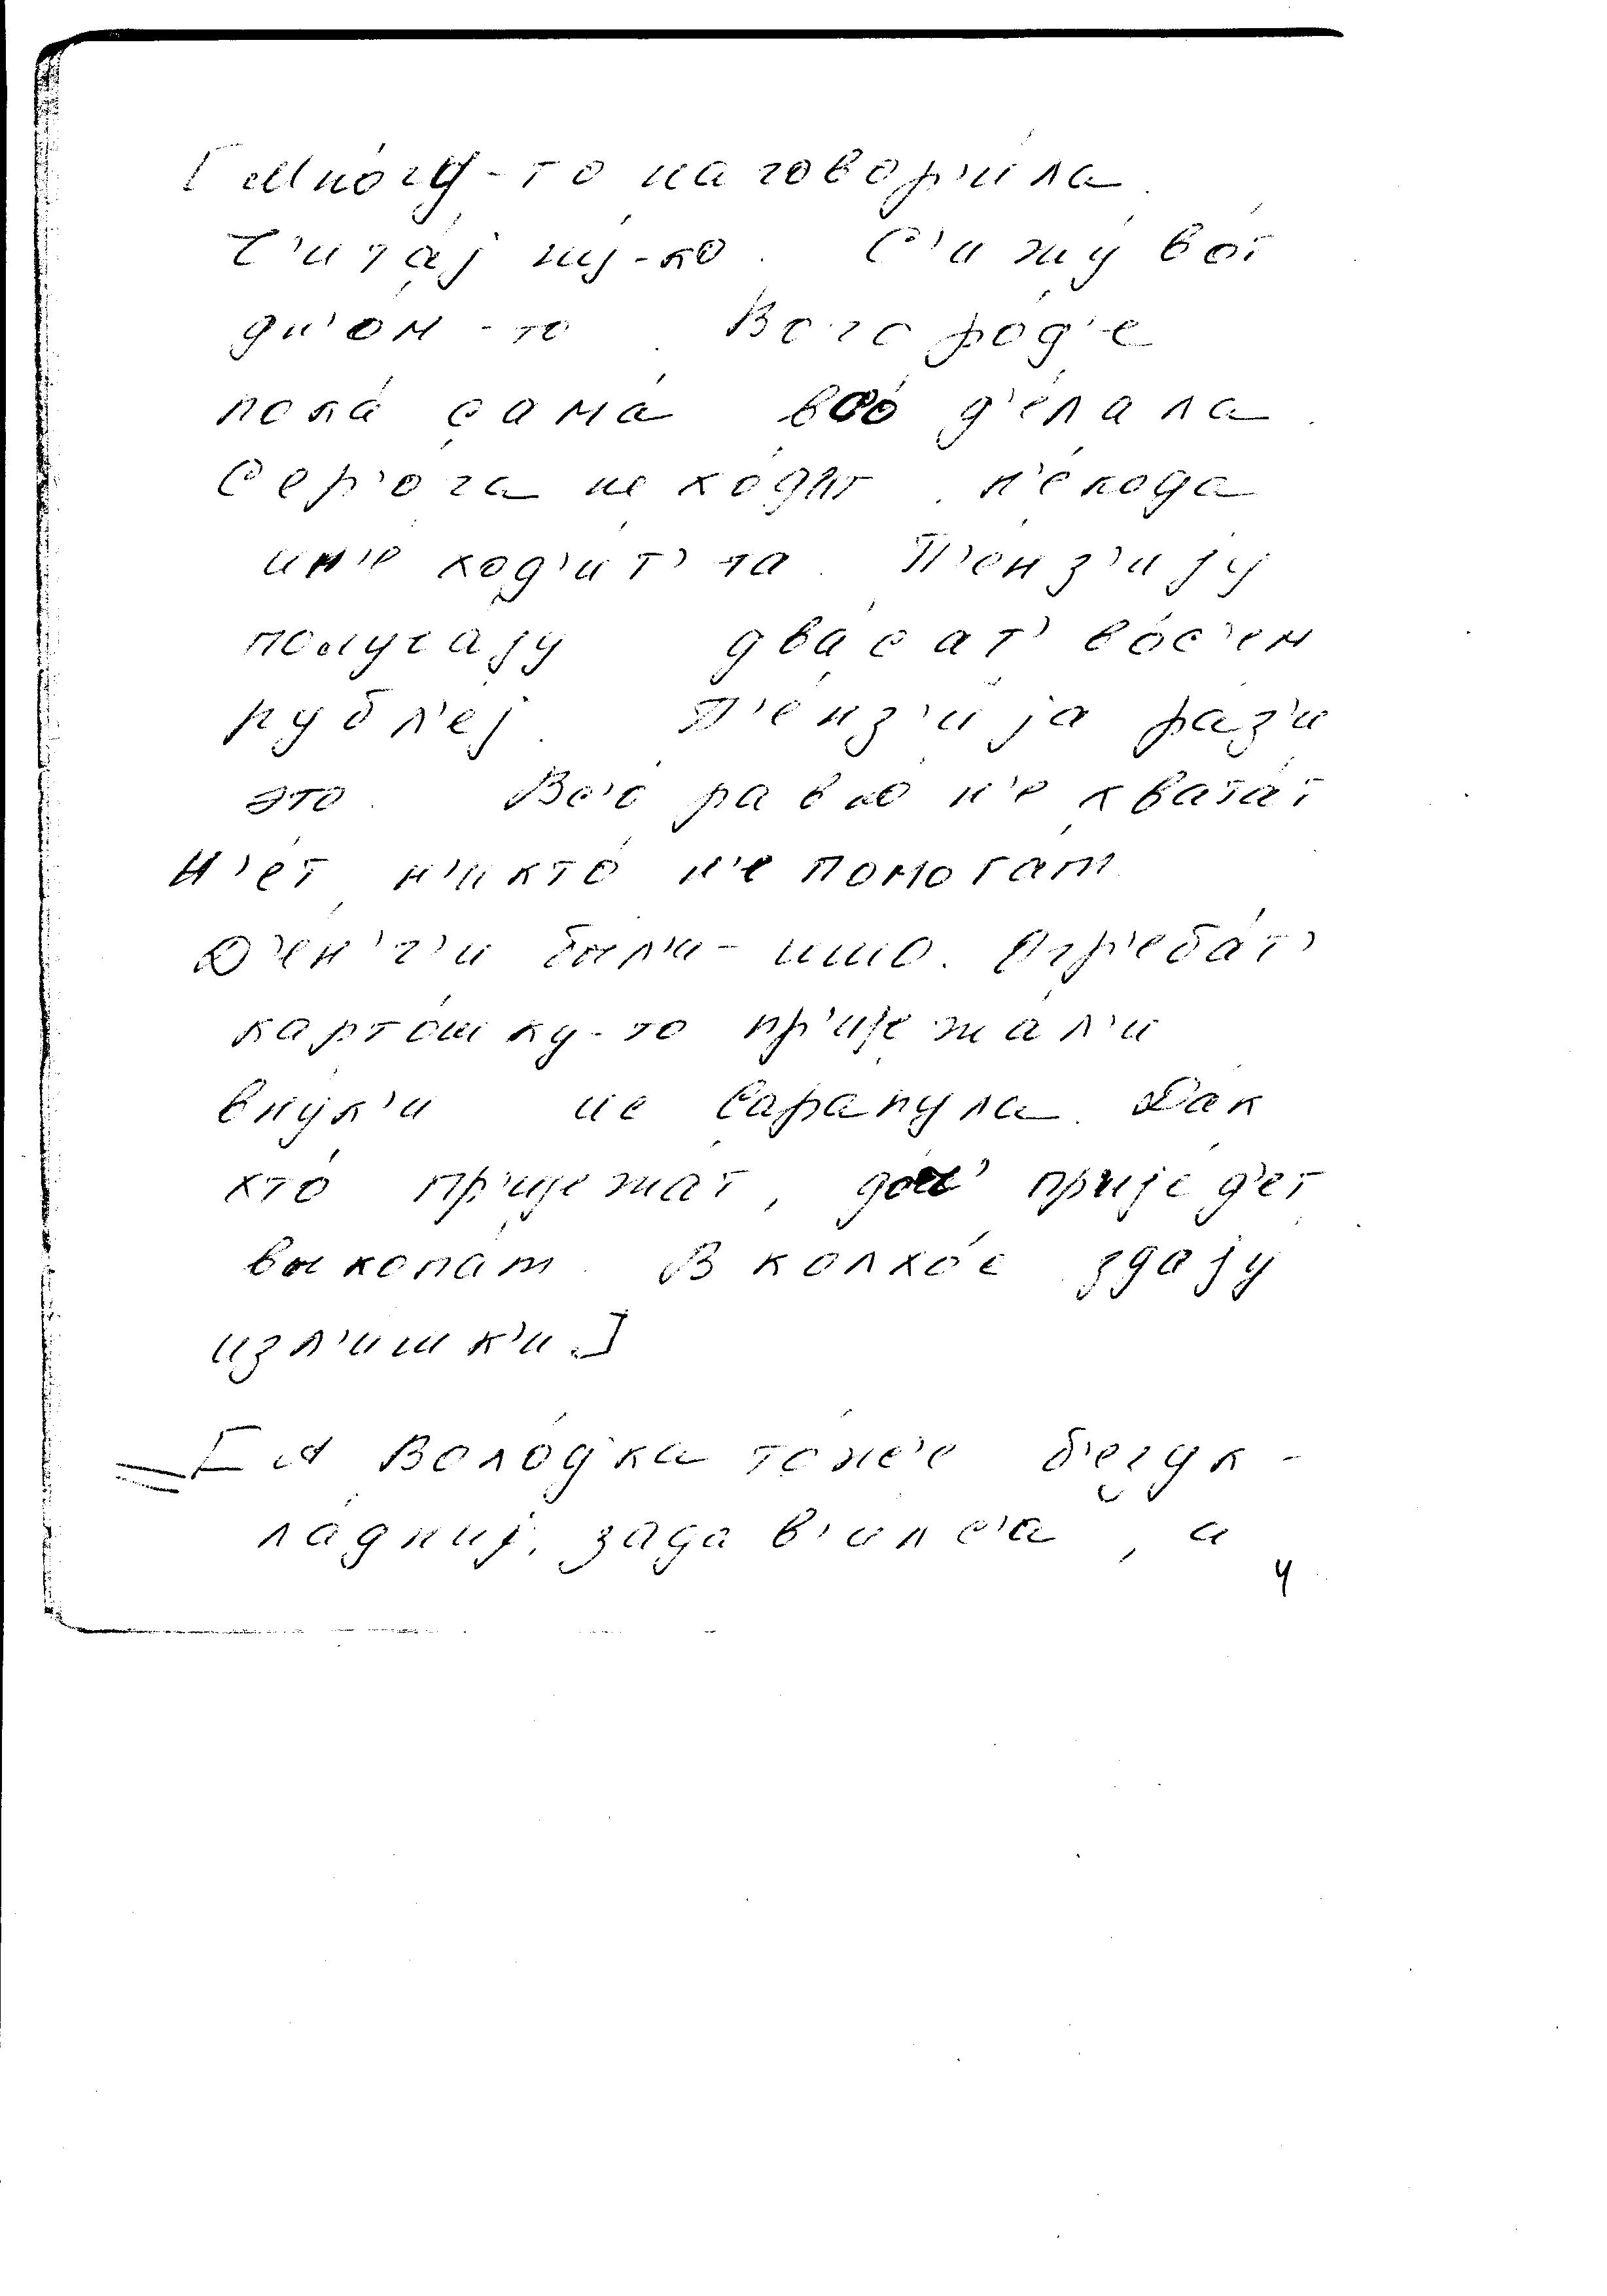 [Мно́гу-то наговор'и́ла.
Ч'ита́j ну́-ко. С'ижу́ во́т
дн'о́м-то. Вогоро́д'е
пока́ сама́ вс'о́ д'е́лала.
Сер'о́га не хо́дит, н'е́кода
им'е ход'и́т'-та. П'е́нз'иjу
получа́jу два́сат' во́с'ем
рубл'е́j. П'е́нз'иjа ра́з'и
это. Вс'о́ равно н'е хвата́т
Н'е́т, н'икто́ н'е помога́т.
Д'е́н'г'и были-ишо. Огр'еба́т'
карто́шку-то пр'иjежа́л'и
вну́к'и ис Сарапула. Да́к
кто́ пр'иjежа́т, до́ч' приjе́д'ет
выкопат. В колхо́с здаjу́
изл'ишк'и.]
[А Воло́д'ка то́же б'езук-
ла́дниj, задав'и́лс'а, а
4